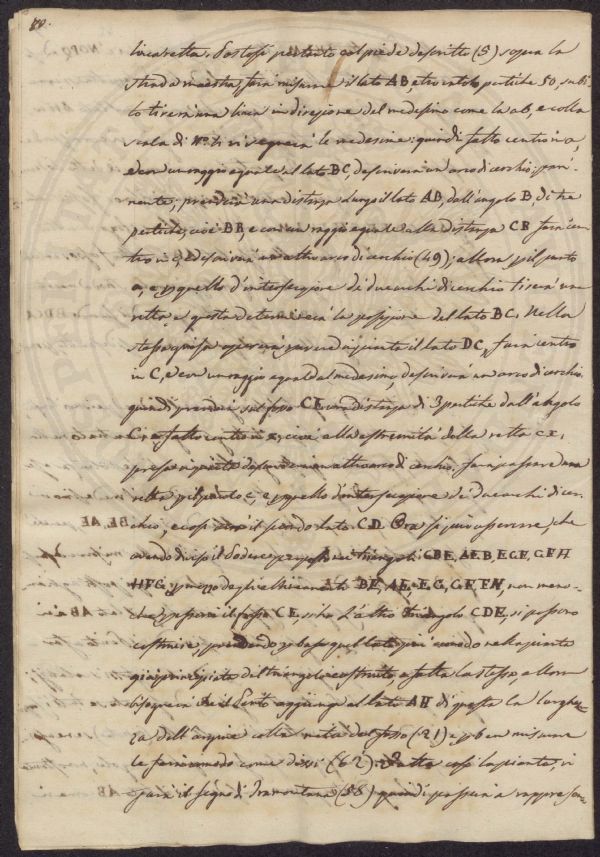 88.
linea retta. Postosi pertanto col piede descritto (5) sopra la
strada maestra, farà misurare il lato AB, e trovatolo pertiche 50, subi-
to tirerà una linea in direzione del medesimo come la ab, e colla
scala di vi segnerà le medesime: quindi fatto centro in a,
e con un raggio eguale al lato BC, descriverà un arco di cerchio: pari-
mente, prenderà una distanza lungo il lato AB, dall'angolo B, di tre
pertiche, cioè BR, e con un raggio eguale alla distanza CR farà cen-
tro in c, e descriverà un altro arco di cerchio (49); allora pel punto
a, e per quello d'intersezione de' due archi di cerchio tirerà una
retta, e questa determinerà la posizione del lato BC. Nella
stessa guisa opererà per avere in pianta il lato DC, farà centro
in C, e con un raggio eguale al medesimo, descriverà un arco di cerchio.
quindi prenderà sul fosso CE una distanza di 3 pertiche dall'angolo
C, e fatto centro in x, cioè alla estremità della retta cx,
presa in pianta descriverà un altro arco di cerchio. farà passare una
retta pel punto c, e per quello d'intersezione de' due archi di cer-
chio, e così avrà il secondo lato CD. Ora si può osservare, che
avendo diviso il Podere ne' triangoli CBE, AEB, EGF, GFH
HFG per mezzo degli allineamenti BE, AE, EG, GF, FH, non meno
che per esservi il fosso CE, si ha l'altro triangolo CDE, si possono
costruire, prendendo per base quel lato già nella pianta
già principiata del triangolo costruito, e fatta la stessa allora
bisognerà che il Perito aggiunga al lato AH di questa la larghez-
za dell'argine colla metà del fosso (21) e per ben misurare
le farà in modo come dissi (62). Fatta così la pianta, vi
farà il segno di Tramontana (58) quindi passerà a rappresen-